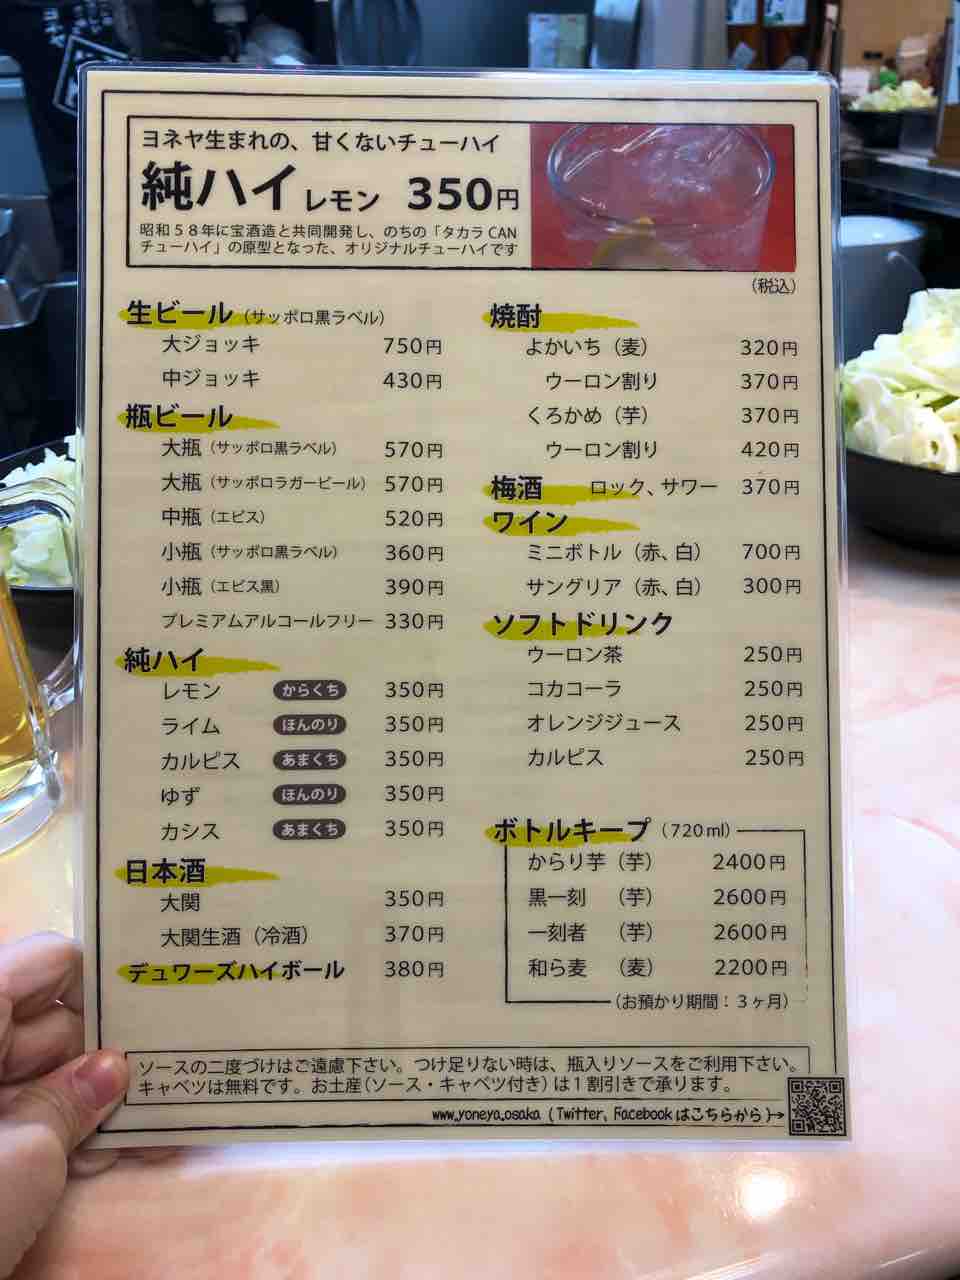 ヨネヤ生まれの、甘くないチューハイ
純ハイ レモン 350円
昭和58年に宝酒造と共同開発し、のちの「タカラCAN
チューハイ」の原型となった、オリジナルチューハイです
(税込)
生ビール (サッポロ黒ラベル)
大ジョッキ 750円
中ジョッキ 430円
瓶ビール
大瓶 (サッポロ黒ラベル) 570円
大瓶 (サッポロラガービール) 570円
中瓶 (エビス) 520円
小瓶 (サッポロ黒ラベル) 360円
小瓶 (エビス黒) 390円
プレミアムアルコールフリー 330円
純ハイ
レモン からくち 350円
ライム ほんのり 350円
カルピス あまくち 350円
ゆず ほんのり 350円
カシス あまくち 350円
日本酒
大関 350円
大関生酒 (冷酒) 370円
デュワーズハイボール 380円
焼酎
よかいち (麦) 320円
ウーロン割り 370円
くろかめ (芋) 370円
ウーロン割り 420円
梅酒 ロック、サワー 370円
ワイン
ミニボトル (赤、白) 700円
サングリア (赤、白) 300円
ソフトドリンク
ウーロン茶 250円
コカコーラ 250円
オレンジジュース 250円
カルピス 250円
ボトルキープ (720ml)
からり芋 (芋) 2400円
黒一刻 (芋) 2600円
一刻者 (芋) 2600円
和ら麦 (麦) 2200円
(お預かり期間：3ヶ月)
ソースの二度づけはご遠慮下さい。つけ足りない時は、瓶入りソースをご利用下さい。
キャベツは無料です。お土産(ソース・キャベツ付き)は1割引きで承ります。
www.yoneya.osaka (Twitter, Facebookはこちらから)→